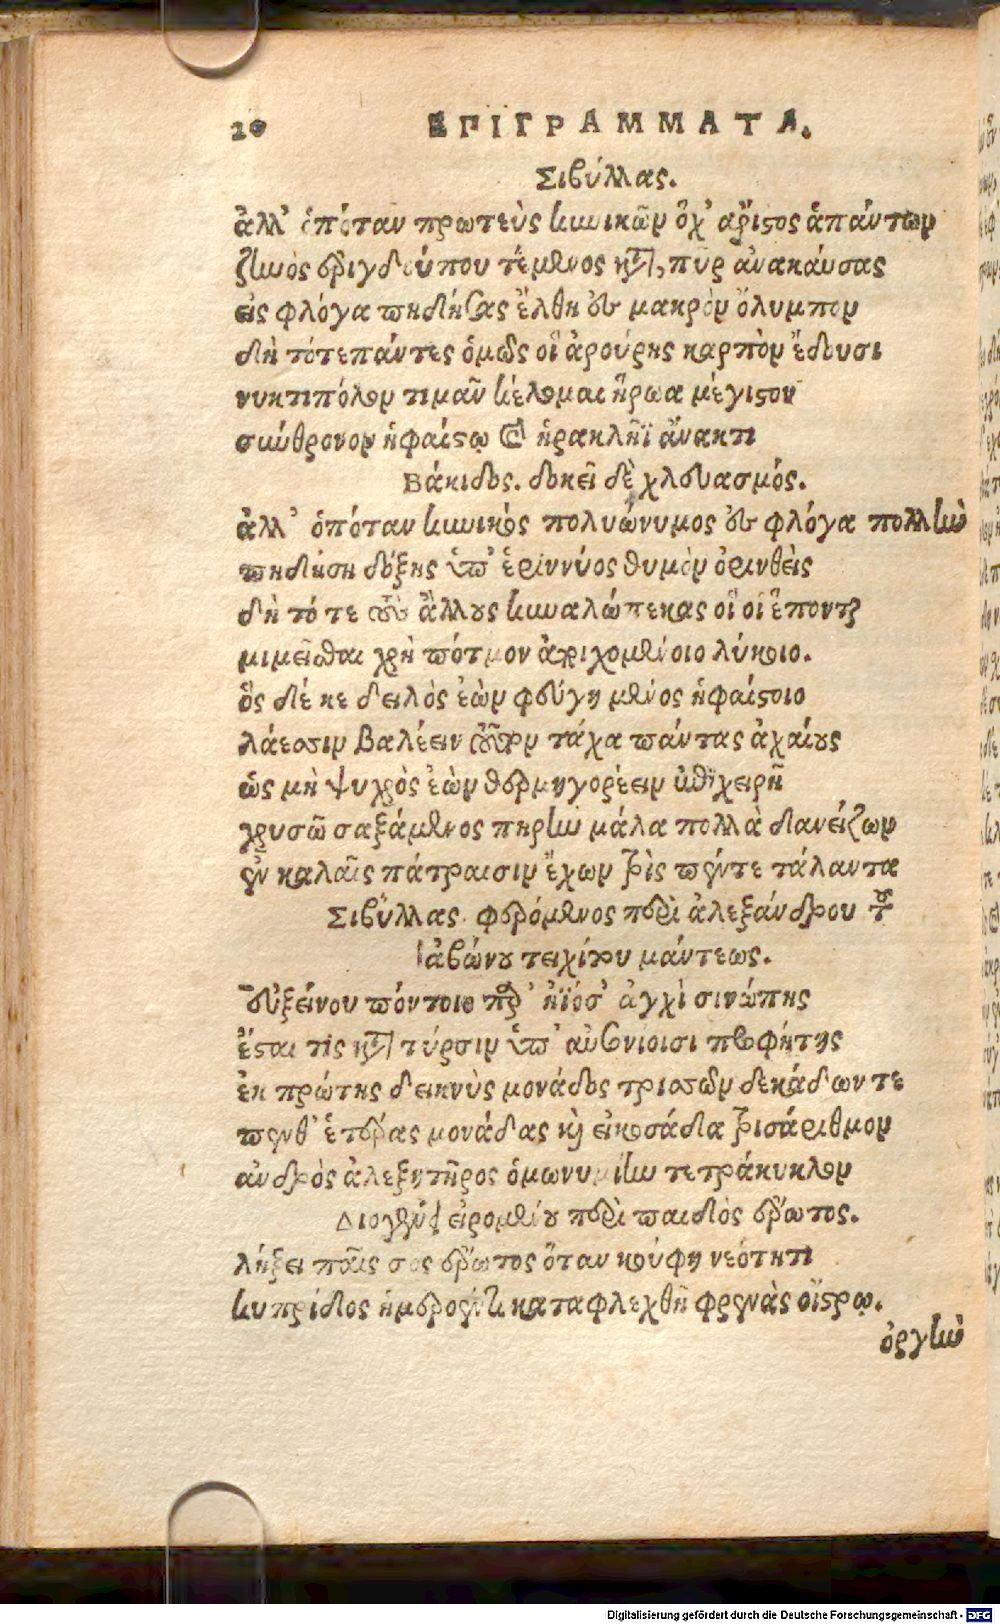 20 ΕΠΙΓΡΑΜΜΑΤΑ.
Σιβύλλας.
ἀλλ' ὁπόταν πρωτεὺς κυνικῶν ὄχ' ἄριστος ἁπάντων
ζηνὸς ἐριγδούπου τέμενος κάτα, πῦρ ἀνακαύσας
εἰς φλόγα πηδήσας ἔλθῃ ἐς μακρὸν ὄλυμπον
δὴ τότε πάντες ὁμῶς οἳ ἀρούρης καρπὸν ἔδουσι
νυκτιπόλον τιμᾶν κέλομαι ἥρωα μέγιστον
σύνθρονον ἡφαίστῳ καὶ ἡρακλῆϊ ἄνακτι
Βάκιδος. δοκεῖ δὲ χλευασμός.
ἀλλ' ὁπόταν κυνικὸς πολυώνυμος ἐς φλόγα πολλὴν
πηδήσῃ δόξης ὑπ' ἐρίννύος θυμὸν ὀρινθεὶς
δὴ τότε τοὺς ἄλλους κυναλώπεκας οἵ οἱ ἕπονται
μιμεῖσθαι χρὴ πότμον ἀποιχομένοιο λύκοιο.
ὃς δέ κε δειλὸς ἐὼν φεύγῃ μένος ἡφαίστοιο
λάεσσιν βαλέειν τοῦτον τάχα πάντας ἀχαίους
ὡς μὴ ψυχρὸς ἐὼν θερμηγορέειν ἐπιχειρῇ
χρυσῷ σαξάμενος πήρην μάλα πολλὰ δανείζων
ἐν καλαῖς πάτραισιν ἔχων τρὶς πέντε τάλαντα
Σιβύλλας. φερόμενος περὶ ἀλεξάνδρου τοῦ
ἀβώνου τειχίτου μάντεως.
Εὐξείνου πόντοιο παρ' ἠϊόσ' ἀγχὶ σινώπης
ἔσται τὶς κατὰ τύρσιν ὑπ' αὐσονίοισι προφήτης
ἐκ πρώτης δεικνὺς μονάδος τρισσῶν δεκάδων τε
πένθ' ἑτέρας μονάδας καὶ εἰκοσάδα τρισάριθμον
ἀνδρὸς ἀλεξητῆρος ὁμωνυμίην τετράκυκλον
Διογένει εἰρομένου περὶ παιδὸς ἔρωτος.
λήξει παῖς σος ἔρωτος ὅταν κούφῃ νεότητι
κυπρίδος ἡμερόεντι καταφλεχθῇ φρένας οἴστρῳ.
ὀργὴν
Digitalisierung gefördert durch die Deutsche Forschungsgemeinschaft - DFG